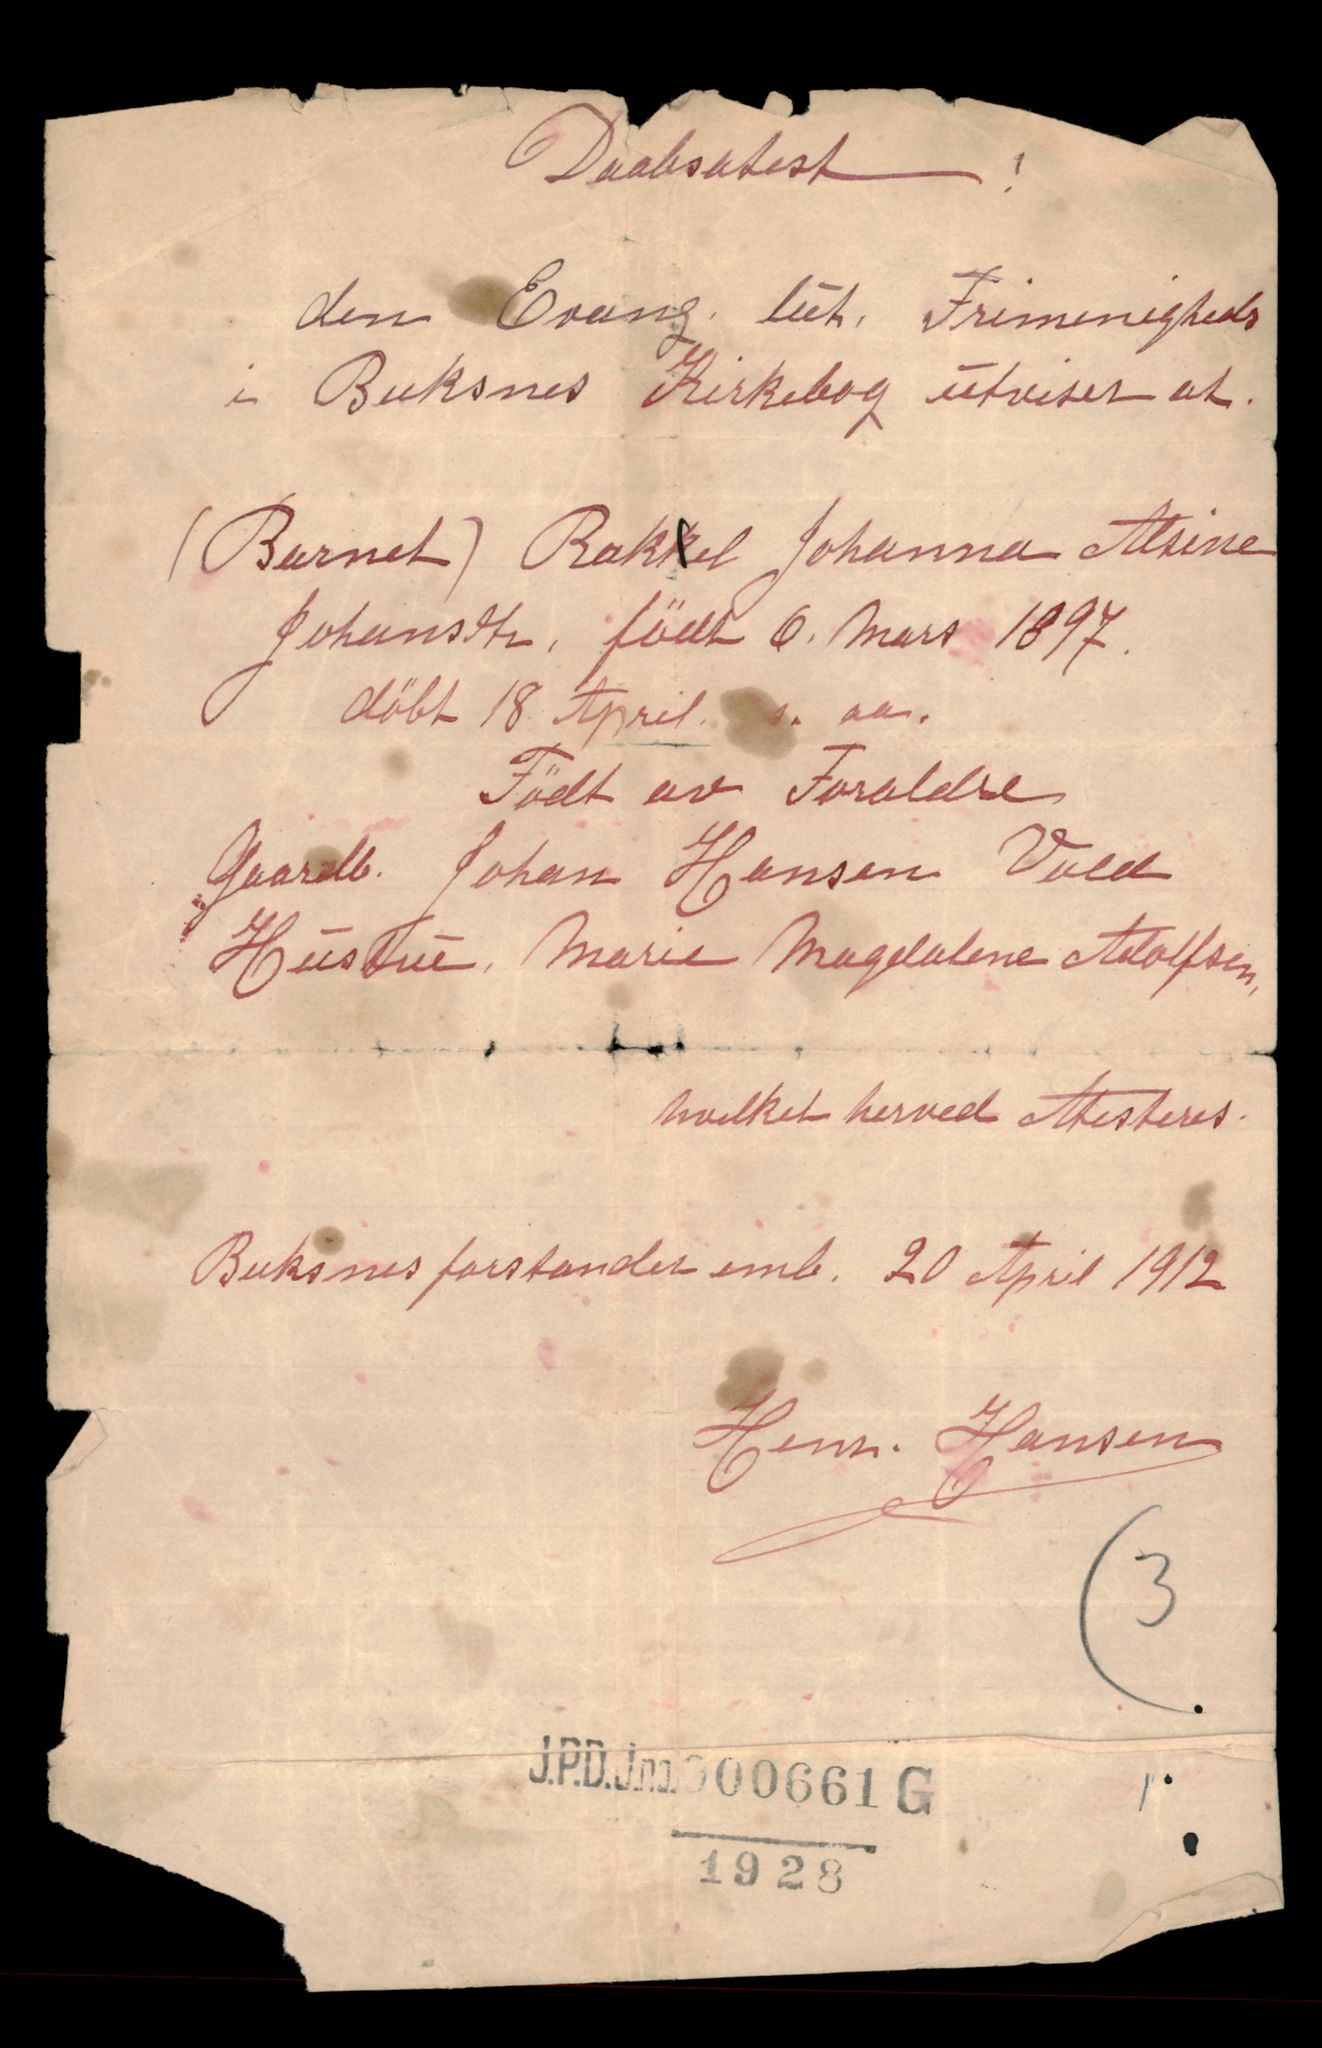 Daabsatest !
den Evang. lut. Frimenigheds
i Buksnes Kirkebog utviser at.
(Barnet) Rakkel Johanna Alsine
Johansdtr, födt 6. Mars 1897.
döbt 18 April. s. aa.
Födt av Foraldre
Gaardb. Johan Hansen Vold
Hustru, Marie Magdalene Adolfsen,
hvilket herved Atesteres.
Buksnes forstander emb. 20 April 1912
Henr. Hansen
(3
J.P.D.J.no.000661 G
1928